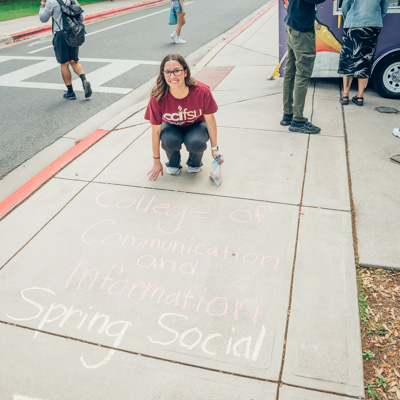 ccifsu
College of
Communication
and
Information
Spring Social